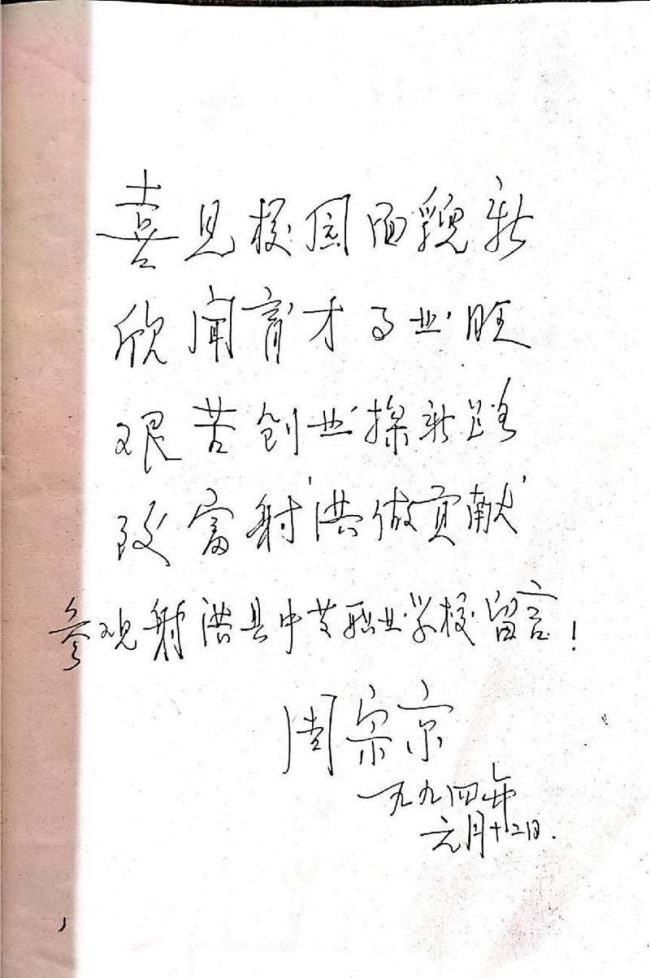 喜见校园面貌新
欣闻育才事业旺
艰苦创业探新路
致富射洪做贡献
参观射洪县中等职业学校留言!
周宗京
一九九四年
元月十二日.